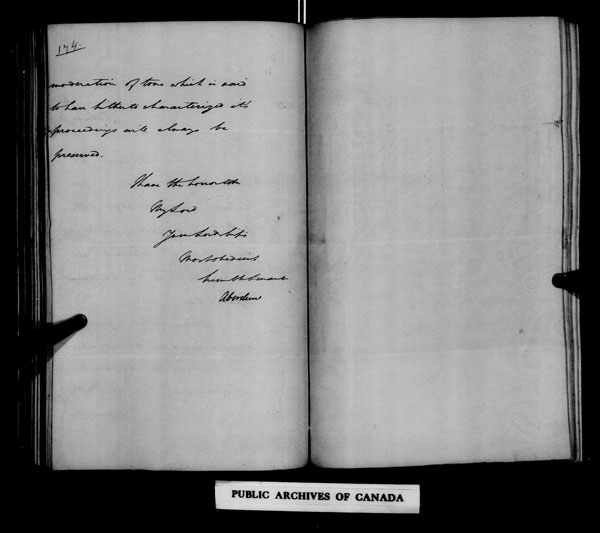 174.
moderation of tone which is said
to have hitherto characterized its
proceedings will always be
preserved.
I have the honor to be
My Lord
Your Lordship's
Most obedient
humble Servant
Aberdeen
PUBLIC ARCHIVES OF CANADA